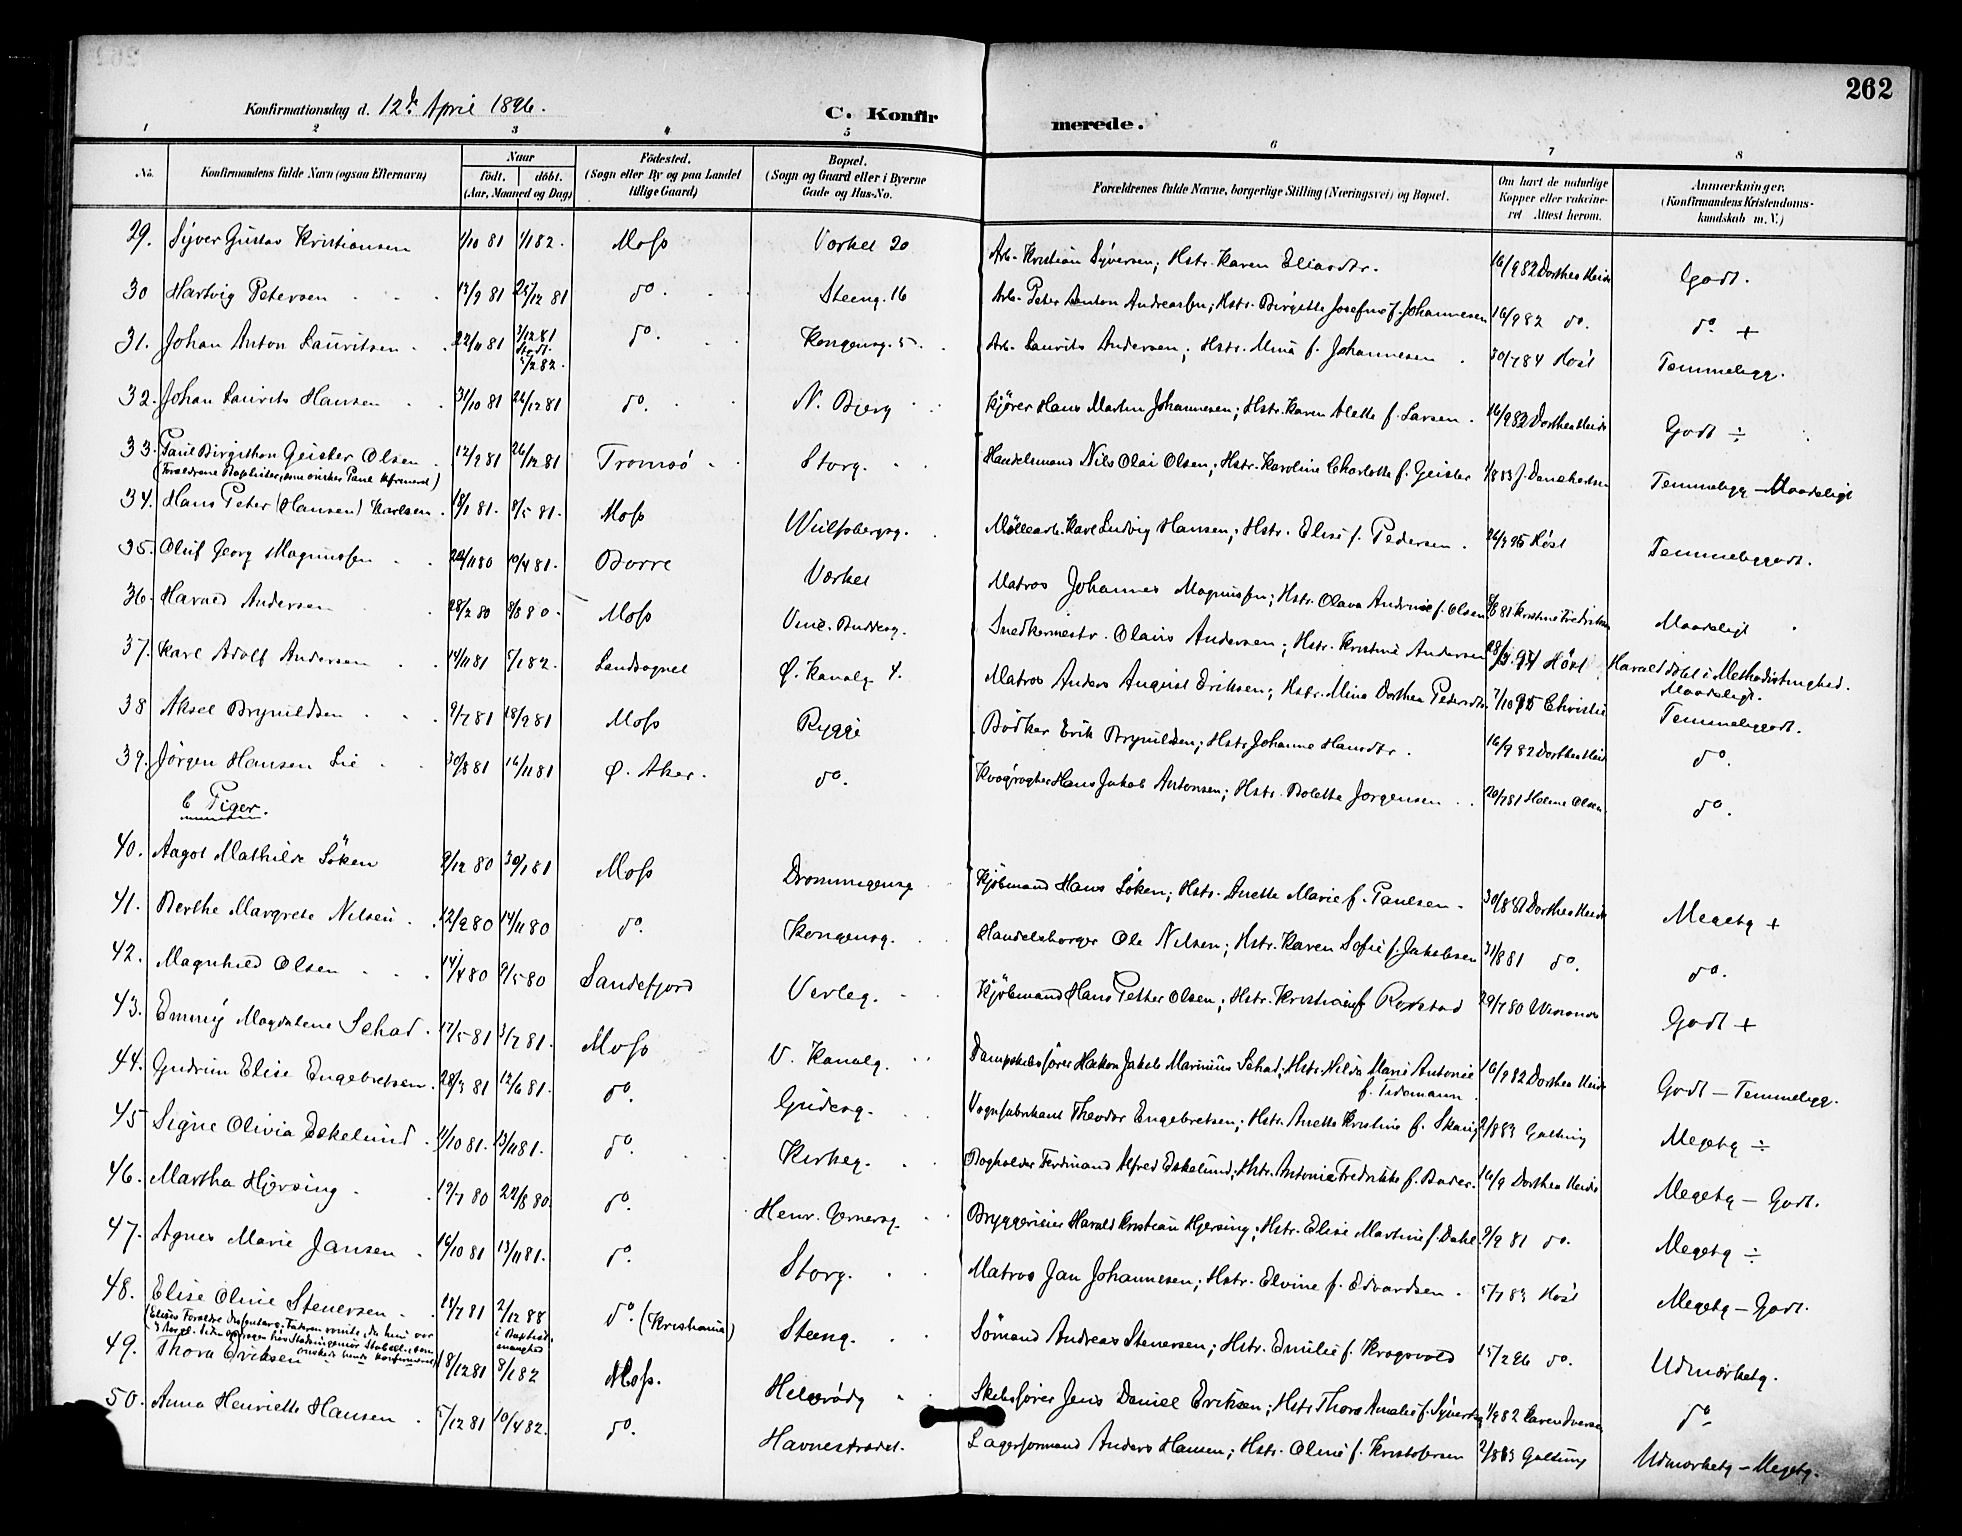 262
Konfirmationsdag d. 12te April 1896.
C. Konfirmerede.
1 2 3 4 5 6 7 8
No. Konfirmandens fulde Navn (ogsaa Efternavn) Naar födt. döbt. (Aar, Maaned og Dag) Födested. (Sogn eller By og paa Landet tillige Gaard) Bopæl. (Sogn og Gaard eller i Byerne Gade og Hus-No. Forældrenes fulde Navne, borgerlige Stilling (Næringsvei) og Bopæl. Om havt de naturlige Kopper eller vakcineret Attest herom. Anmærkninger, (Konfirmandens Kristendomskundskab m. V.)
29. Syver Gustav Kristiansen 1/10 81 1/1 82. Moss Værket 20 Arb. Kristian Syversen; Hstr. Karen Eliasdtr. 16/9 82 Dorthea Heide Godt.
30 Hartvig Petersen 17/9 81 25/12 81 do. Steeng. 16 Arb. Peter Anton Andreassen; Hstr. Birgitte Josefine f. Johannesen 16/9 82 do. do. +
31. Johan Anton Lauritsen 22/11 81 3/12 81 Stedf. 5/2 82. do. Kongensg. 5. Arb. Laurits Andersen; Hstr. Mina f. Johannesen 30/7 84 Höst Temmeligg.
32. Johan Laurits Hansen 31/10 81 26/12 81 do. N. Bjerg Kjörer Hans Martin Johannesen; Hstr. Karen Alette f. Larsen. 16/9 82 Dorthea Heide Godt ÷
33. Paul Birgithon Geisler Olsen 12/9 81 26/12 81 Tromsö Storg. Handelsmand Nils Olai Olsen; Hstr. Karoline Charlotte f. Geisler Temmeligg - Maadeligt
(Forældrene Baptister, som önsker Paul konfirmeret)
34. Hans Peter (Hansen) Karlsen. 18/1 81. 8/5 81. Moss Wulfsbergsg. Möllearb. Karl Ludvig Hansen; Hstr. Elise f. Pedersen. Höst Temmeliggodt.
35. Oluf Georg Magnussen 10/4 81. Borre Værket Matros Johannes Magnussen; Hstr. Olava Andrine f. Olsen Kristine Fredriksen Maadeligt
36. Harald Andersen 28/2 80 Moss Vinc. Buddesg. Snedkermestr. Olaus Andersen; Hstr. Kristine Andersen Höst Harald döbt i Methodistmenighed. Maadeligt.
37. Karl Adolf Andersen 14/11 81 7/1 82. Landsognet Ö. Kanalg 4. Matros Anders August Eriksen; Hstr. Mina Dorthea Pedersdtr. 7/10 95 Christie Temmeliggodt.
38 Aksel Brynildsen 9/7 81 18/9 81 Moss Rygge Bödker Erik Brynildsen; Hstr. Johanne Hansdtr. 16/9 82 Dorthea Heide do.
39. Jörgen Hansen Lie 30/8 81 16/11 81 Ö. Aker. do. Hans Jakob Antonsen; Hstr. Bolette Jorgensen 20/7 81 Olsen. do.
b Piger.
40. Aagot Mathilde Söken 9/12 80 30/1 81 Moss Dronningensg Kjöbmand Hans Söken; Hstr. Anette Marie f. Paulsen. 30/8 81 Dorthea Heide Megetg +
41. Berthe Margrete Nilsen 12/9 80 14/11 80 do. Kongensg. Handelsborger Ole Nilsen; Hstr. Karen Sofie f. Jakobsen 31/8 81 do. do.
42. Magnhild Olsen 14/4 80 9/5 80 Sandefjord Verleg. Kjöbmand Hans Petter Olsen; Hstr. Kristiane f. Rorstad 29/7 80 Godt +
43. Emmy Magdalene Schad. 17/5 81 3/7 81. Moss V. Kanalg. Dampskibsförer Hakon Jakob Marinius Schad; Hstr. Hilda Marie Antonie f. Tidemann. 16/9 82 Dorthea Heide Godt - Temmeligg.
44. Gudrun Elise Engebretsen. 28/3 81 12/6 81. do. Gudesg. Vognfabrikant Theodor Engebretsen; Hstr. Anette Kristine f. Skaug 2/8 83 Galtung Megetg ÷
45 Signe Olivia Eskelund. 11/10 81. 13/11 81. do. Kirkeg. Bogholder Ferdinand Alfred Eskelund; Hstr. Antonia Fredrikke f. Bader. 16/9 Dorthea Heide Megetg - Godt.
46. Martha Hjersing. 19/7 80 22/8 80. do. Henr. Gernersg. Bryggerieier Harald Kristian Hjersing; Hstr. Elise Martine f. Dahl. 9/9 81 do. Megetg ÷
47. Agnes Marie Jansen. 16/10 81 13/11 81. do. Storg. Matros Jan Johannesen; Hstr. Elvine f. Edvardsen. 5/7 83 Höst Megetg - Godt.
48. Elise Oline Stenersen 18/7 81 2/12 88 i Baptistmenighed do. (Kristiania) Steeng. Sömand Andreas Stenersen; Hstr. Emilie f. Krogsvold 15/2 96 do. Udmærketg.
(Elises Forældre Dissentere; Faderen
önskede hende konfirmeret)
49. Thora Eriksen 18/12 81 8/1 82 Moss. Helgerödg Skibsförer Jens Daniel Eriksen; Hstr. Thora Amalie f. Syvertsen 1/9 82 Karen Iversen do
50. Anna Henriette Hansen. 5/12 81 10/4 82. do. Havnestrædet. Lagerformand Anders Hansen; Hstr. Oline f. Kristofersen 2/8 83 Galtung Udmærketg - Megetg.